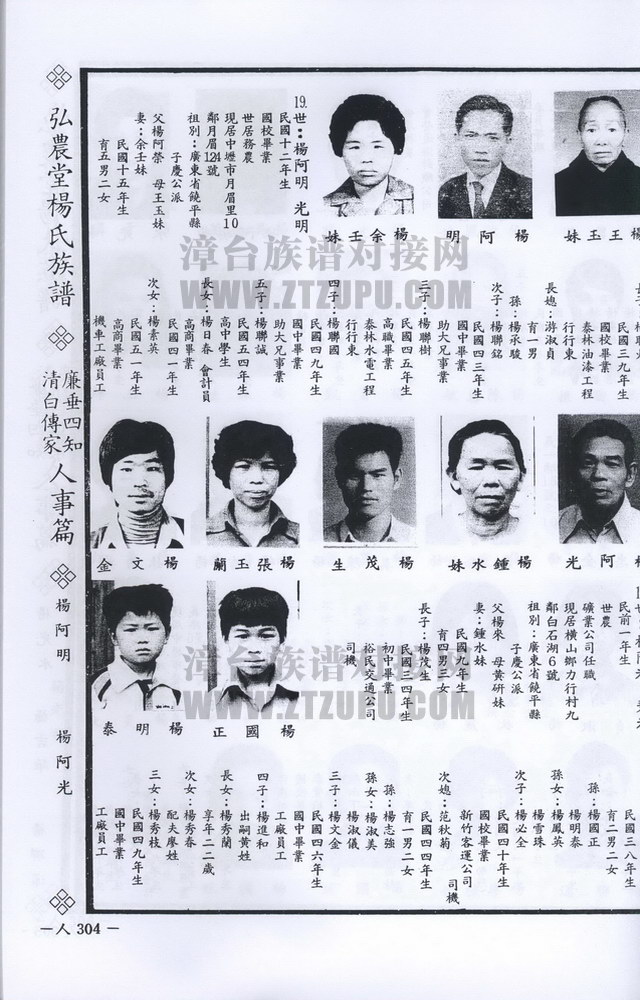 弘農堂楊氏族譜
廉垂四知
清白傳家
人事篇
楊阿明
楊阿光
—人 304—
楊王玉妹
楊阿明
楊余壬妹
19.世：楊阿明 光明
民國十二年生
國校畢業
世居務農
現居中壢市月眉里10
鄰月眉124號
祖別：廣東省饒平縣
子慶公派
父楊阿榮 母王玉妹
妻：余壬妹
民國十五年生
育五男二女
民國三九年生
國校畢業
泰林油漆工程
行行東
長媳：游淑貞
育一男
孫：楊承駿
次子：楊聯銘
民國四三年生
國中畢業
助大兄事業
三子：楊聯樹
民國四五年生
高職畢業
泰林水電工程
行行東
四子：楊聯國
民國四九年生
國中畢業
助大兄事業
五子：楊聯誠
民國五四年生
高中學生
長女：楊日春 會計員
民國四一年生
高商畢業
次女：楊素英
民國五一年生
高商畢業
機車工廠員工
楊阿光
楊鍾水妹
楊茂生
楊張玉蘭
楊文金
民前一年生
世農
礦業公司任職
現居橫山鄉力行村九
鄰白石湖6號
祖別：廣東省饒平縣
子慶公派
父楊來 母黃研妹
妻：鍾水妹
民國九年生
育四男三女
長子：楊茂生
民國三四年生
初中畢業
裕民交通公司
司機
楊國正
楊明泰
民國三八年生
育二男二女
孫：楊國正
楊明泰
孫女：楊鳳英
楊雪珠
次子：楊必全
民國四十年生
國校畢業
新竹客運公司
司機
次媳：范秋菊
民國四四年生
育一男二女
孫：楊志強
孫女：楊淑美
楊淑儀
三子：楊文金
民國四六年生
國中畢業
工廠員工
四子：楊進和
出嗣黃姓
長女：楊秀蘭
享年二二歲
次女：楊秀春
配夫廖姓
三女：楊秀枝
民國四九年生
國中畢業
工廠員工
漳台族谱对接网
WWW.ZTZUPU.COM
漳台族谱对接网
WWW.ZTZUPU.COM